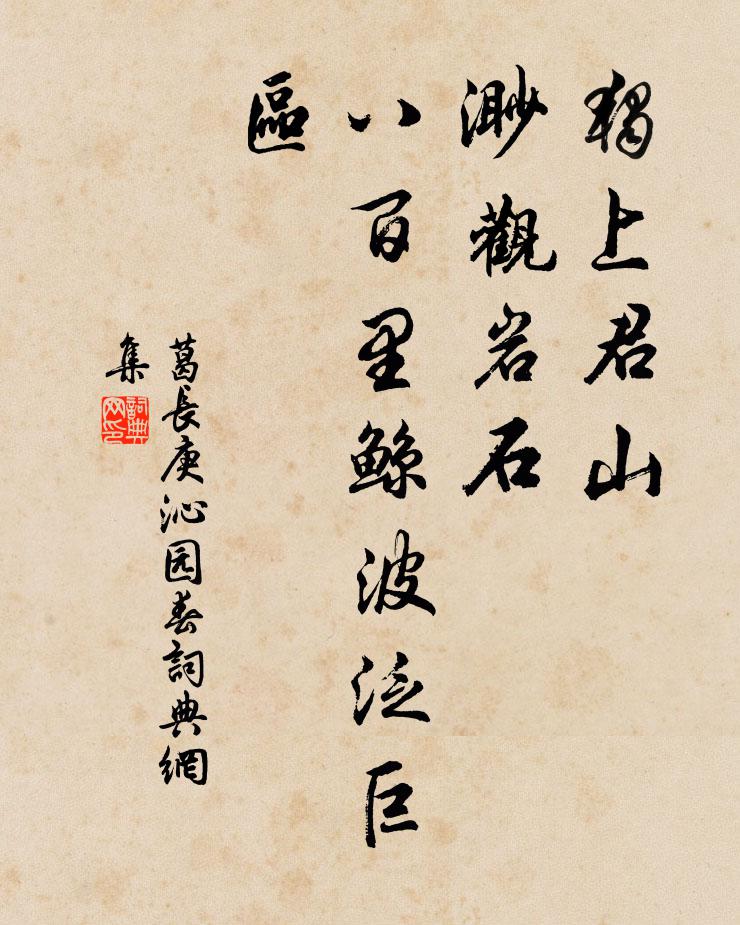 獨上君山
渺觀岩石
八百里鯨波泛巨
區
葛長庚沁园春詞典網
集
詞典
网印